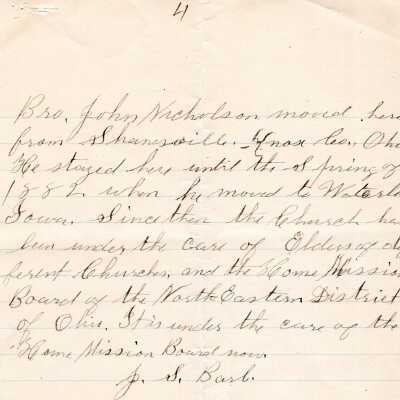 4
Bro. John Nicholson moved here
from Shanesville. Knox Co. Ohio
He stayed here until the Spring of
1882 when he moved to Waterlo
Iowa. Since then the Church ha
been under the care of Elders of dif
ferent Churches, and the Home Mission
Board of the North Eastern District
of Ohio. It is under the care of the
Home Mission Board now.
J. S. Barb.